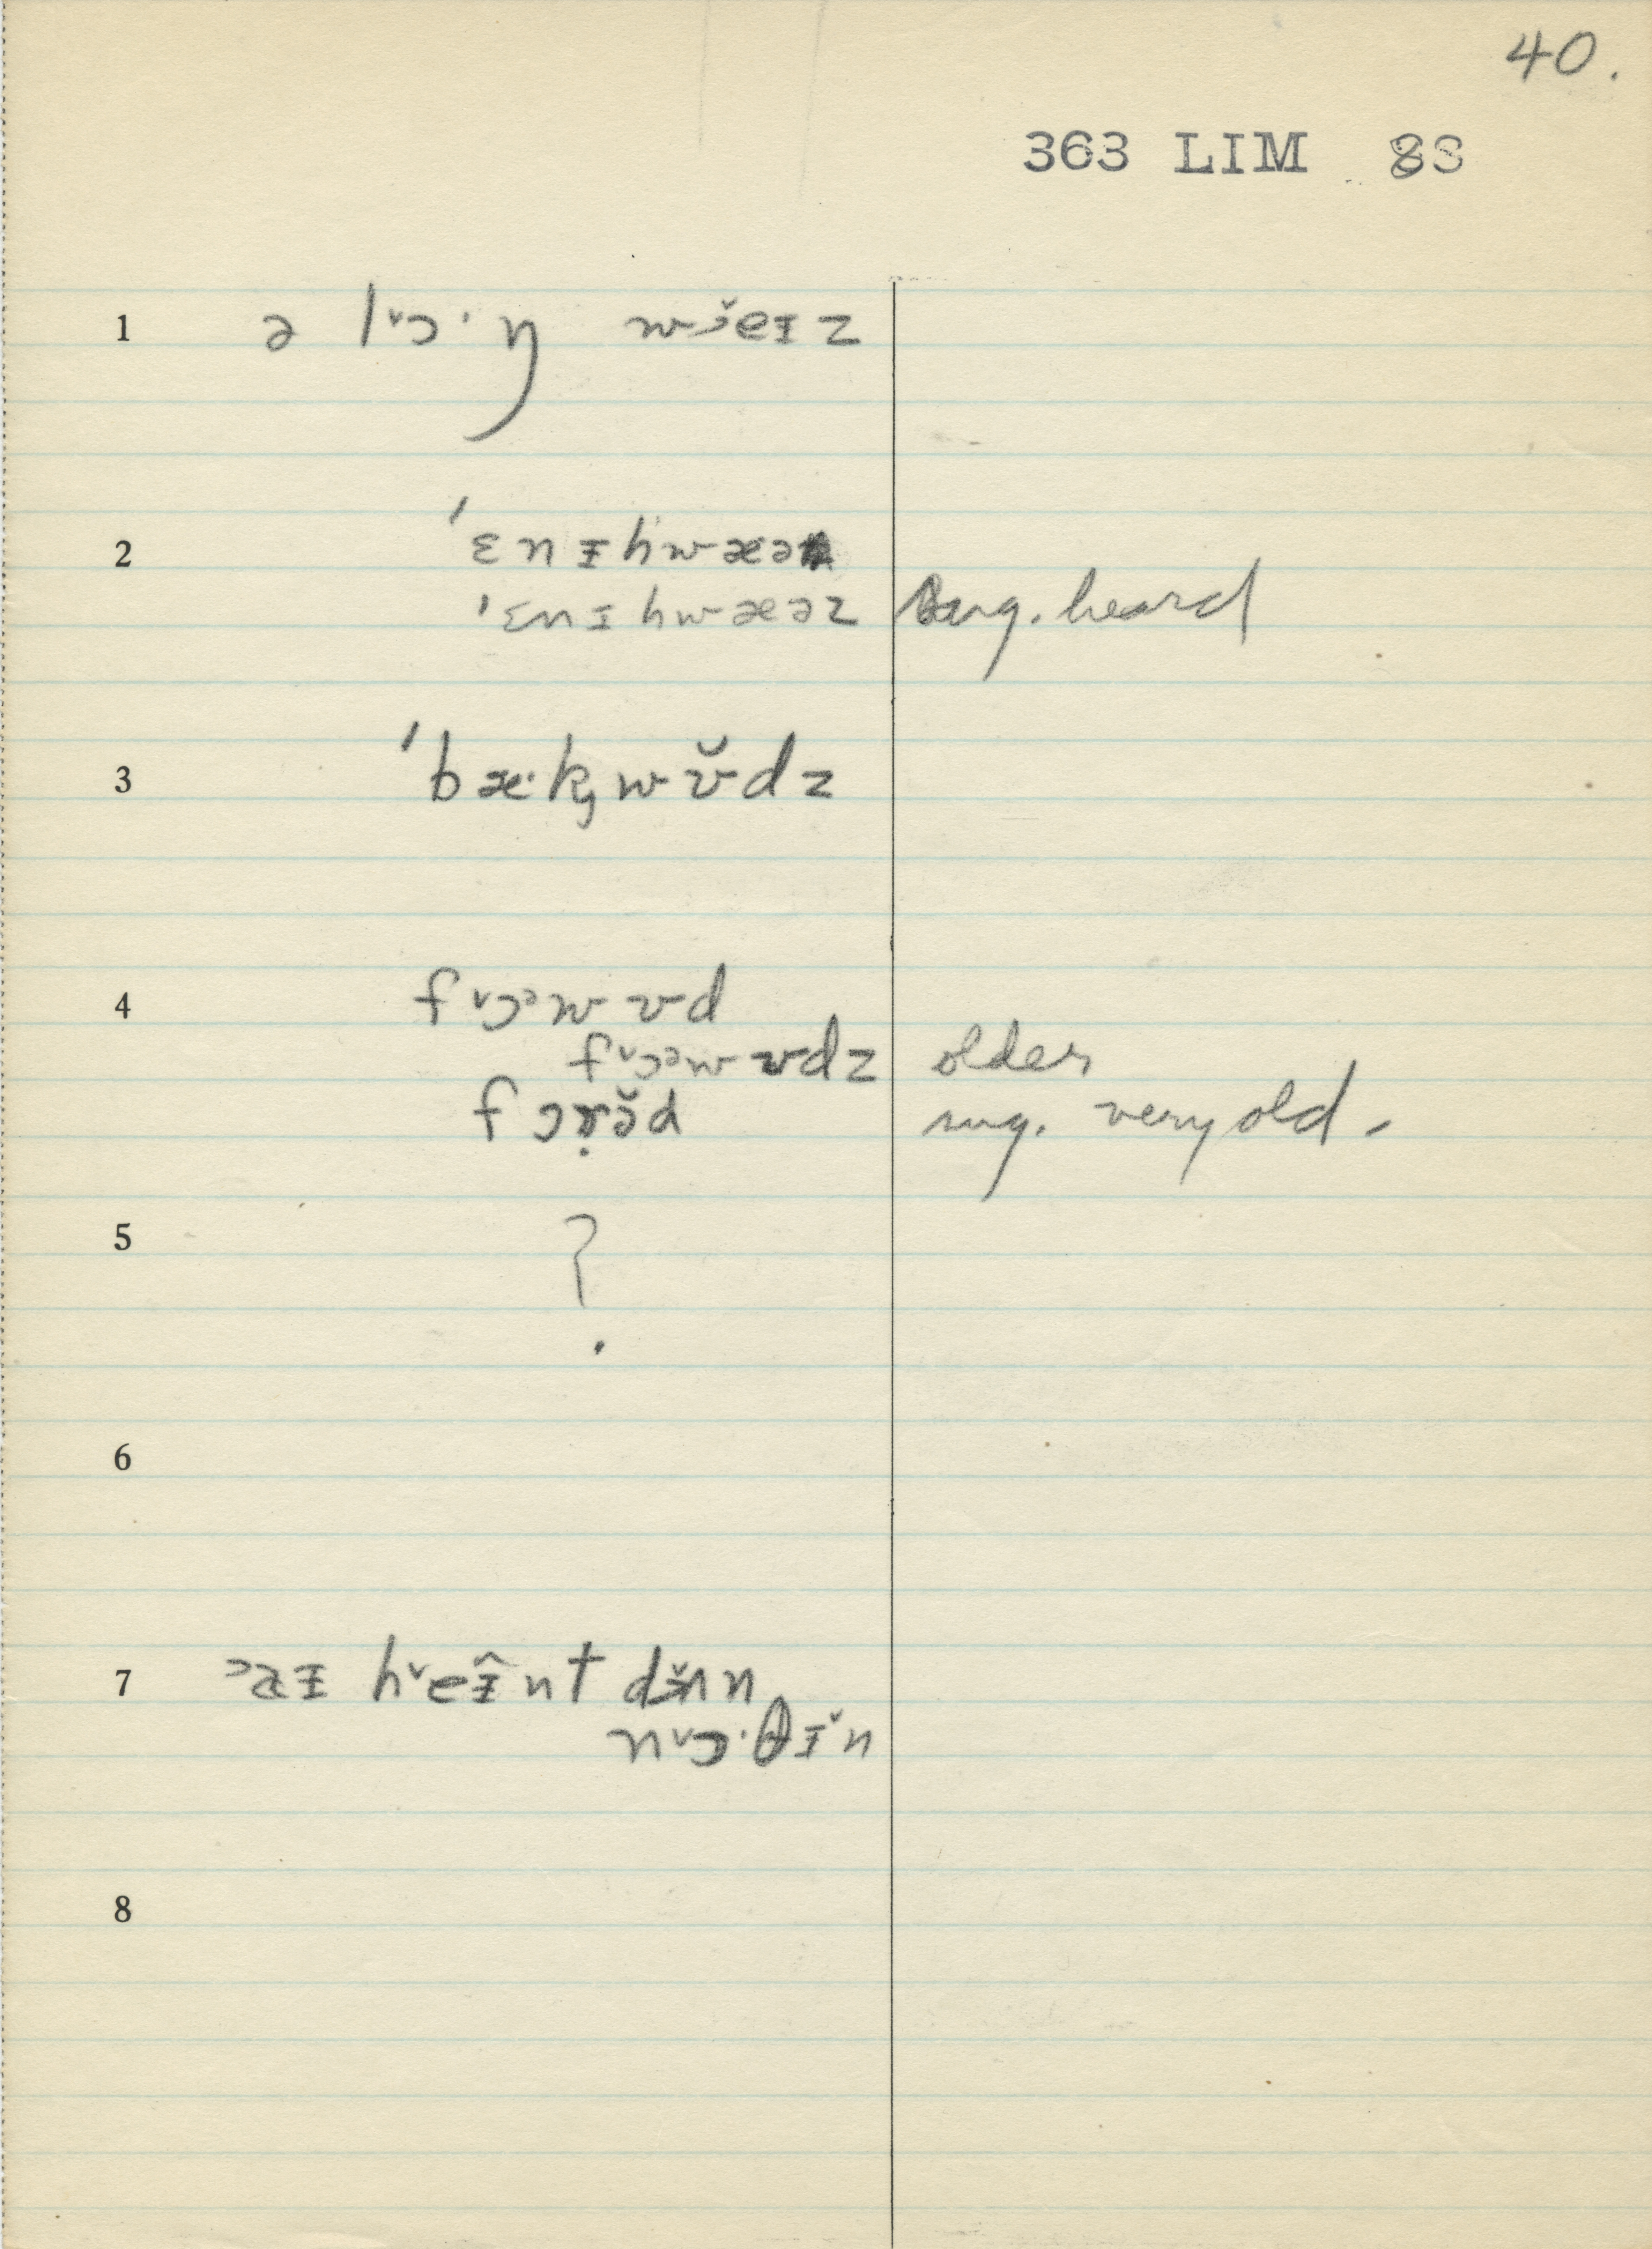 40.
363 LIM 8S
1 ə lˇɔ·ŋ wɔ̌eɪz
2 ˈɛnɪhwæə
ˈɛnɪhwæəz sug. heard
3 ˈbæ·kwʊ̌dz
4 fˇɔᵊwʊd
fˇɔᵊwʊdz older
fɔrə̌d sug. very old.
5 ?
6
7 ɔaɪ hˇeɪ̂nt dɜ̌n n
nˇɔ·θɪˇn
8